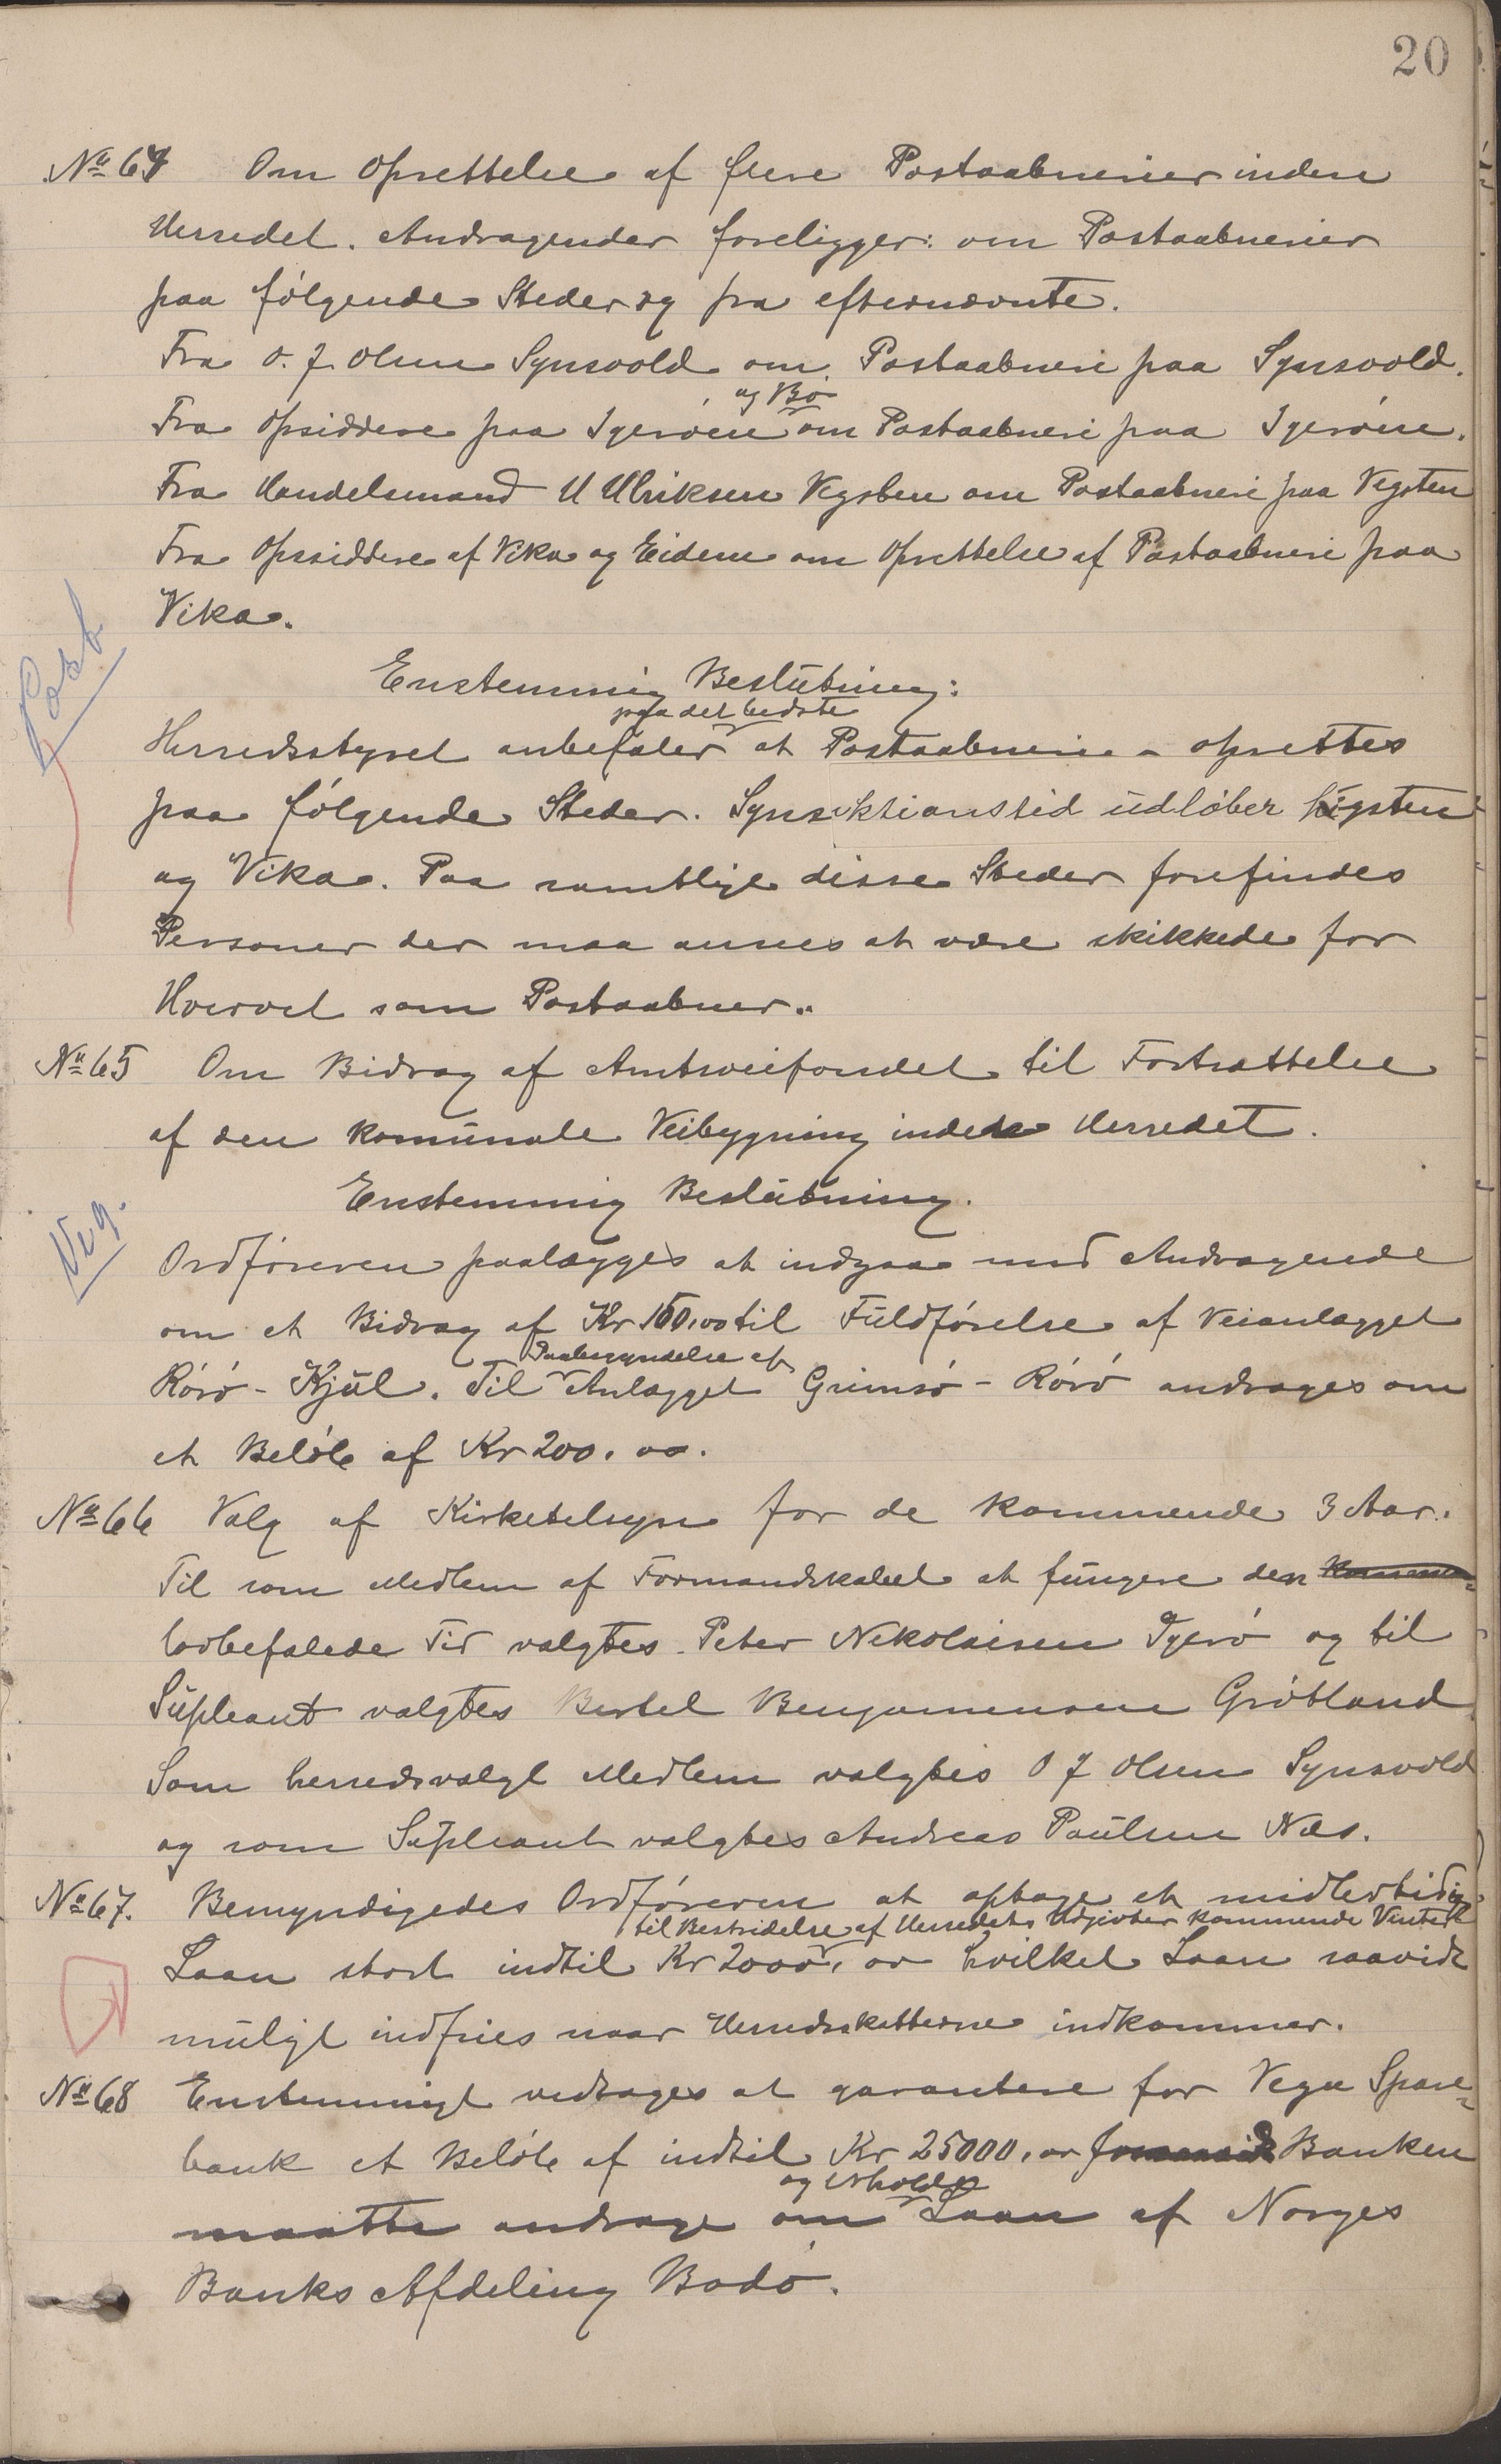 20
No 64 Om Oprettelse af flere Postaabnerier inden
Herredet. Andragender foreligger: om Postaabnerier
paa følgende Steder og fra efternævnte.
Fra O. J. Olsen Synsvold om Postaabneri paa Synsvold.
og Bø
Fra Opsiddere paa Igerøen om Postaabneri paa Igerøen.
Fra Handelsmand U Ulriksen Vegsten om Postaabneri paa Vegsten
Fra Opsiddere af Vika og Eidem om Oprettelse af Postaabneri paa
Vika.
Post
Enstemmig Beslutning:
paa det bedste
Herredsstyret anbefaler at Postaabneri - oprettes
paa følgende Steder. Syns ktionstid udløber gsten
og Vika. Paa samtlige disse Steder forefindes
Personer der maa ansees at være skikkede for
Hvervet som Postaabner.
No 65 Om Bidrag af Amtsveifondet til Fortsættelse
af den komunale Veibygning inden Herredet.
Enstemmig Beslutning.
Veg.
Ordføreren paalægges at indgaa med Andragende
om et Bidrag af Kr 150,00 til Fuldførelse af Veianlægget
Paabegyndelse af
Rørø - Kjul. Til Anlægget Grimsø - Rørø andrages om
et Beløb af Kr 200,00.
No 66 Valg af Kirketilsyn for de kommende 3 Aar.
Til som Medlem af Formandskabet at fungere den
lovbefalede Tid valgtes Peter Nikolaisen Igerø og til
Supleant valgtes Bertel Benjaminsen Grøtland
Som herredsvalgt Medlem valgtes O J Olsen Synsvold
og som Supleant valgtes Andreas Paulsen Næs.
No 67. Bemyndigedes Ordføreren at optage et midlertidig
til Bestridelse af Herredets Udgivter kommende Vinter
Laan stort indtil Kr 2000,00 hvilket Laan saavidt
muligt indfries naar Herredsskatterne indkommer.
No 68 Enstemmigt vedtages at garantere for Vega Spare-
bank et Beløb af indtil Kr 25000,00 Banken
og erholde
maatte andrage om Laan af Norges
Banks Afdeling Bodø.